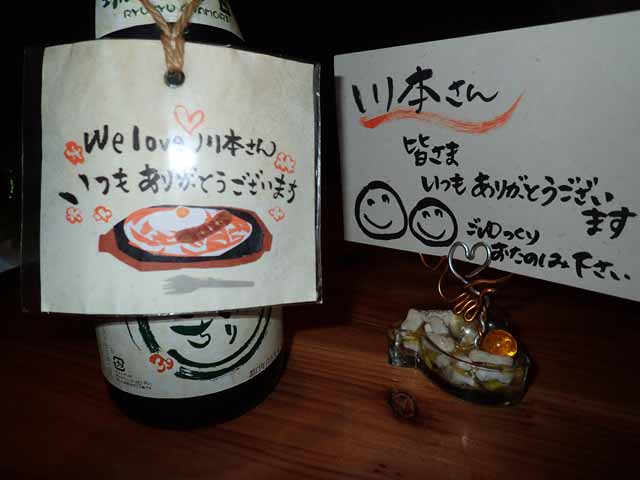 RYUKYU AWAMORI
We love 川本さん
いつもありがとうございます
39
川本さん
皆さま
いつもありがとうござい
ます
ごゆっくり
おたのしみ下さい